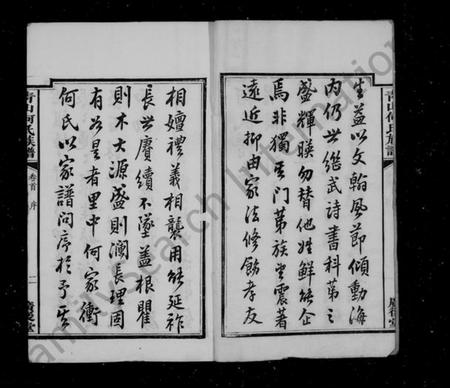 生益以文翰風節傾動海
内仍世繼武詩書科第之
盛輝暎勿替他姓鮮能企
焉非獨其門第族望震著
遠近抑由家法修飭孝友
青山何氏族譜
相嬗禮義相襲用能延祚
長世賡續不墜蓋根瞿
則木大源盛則瀾長理固
有必是者里中何家衝
何氏以家譜問序於予
青山何氏族譜
卷首
序
二